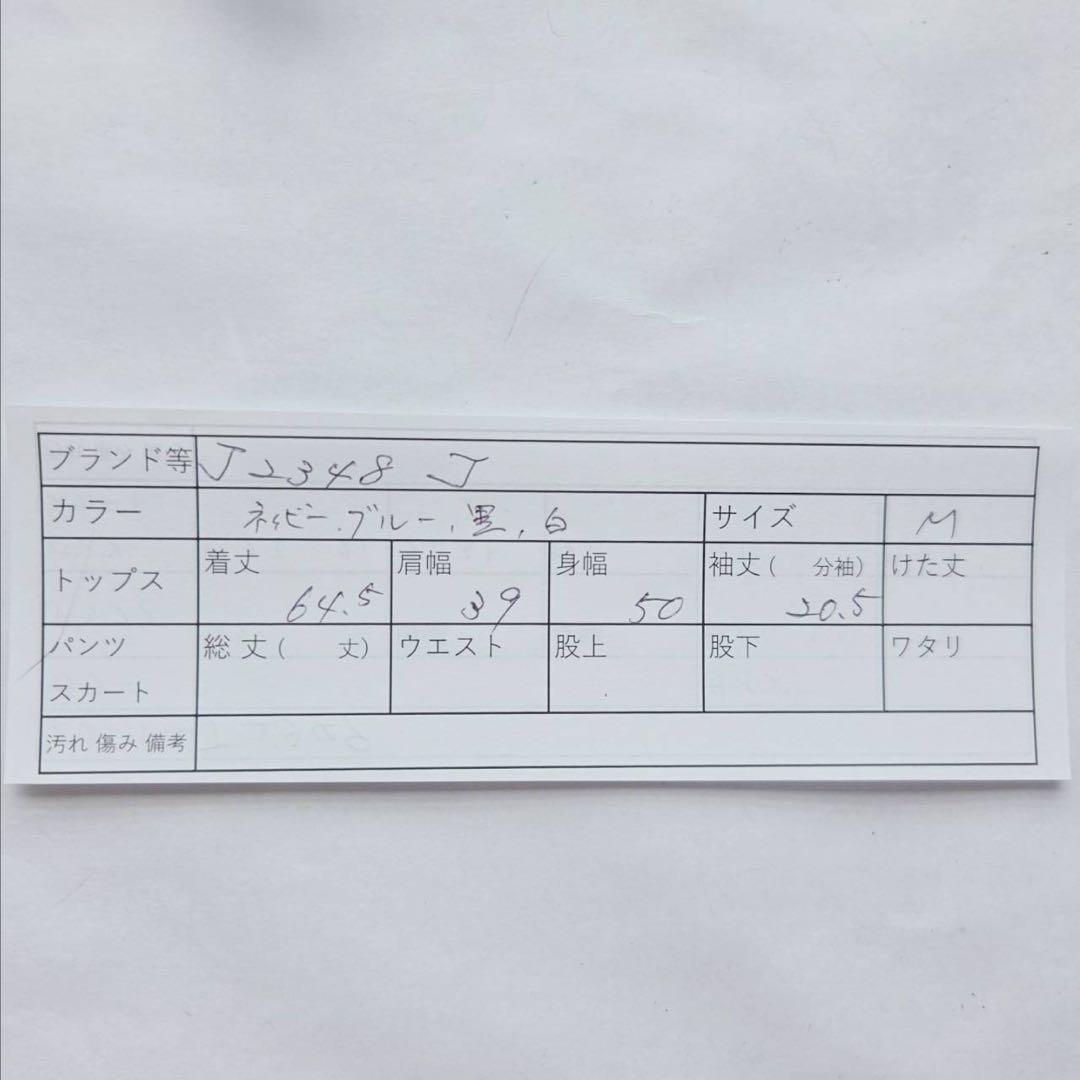 ブランド等 J2348 J
カラー ネイビー、ブルー、黒、白 サイズ M
トップス 着丈 64.5 肩幅 39 身幅 50 袖丈(　分袖) 20.5 けた丈
パンツ 総丈(　丈) ウエスト 股上 股下 ワタリ
スカート
汚れ 傷み 備考